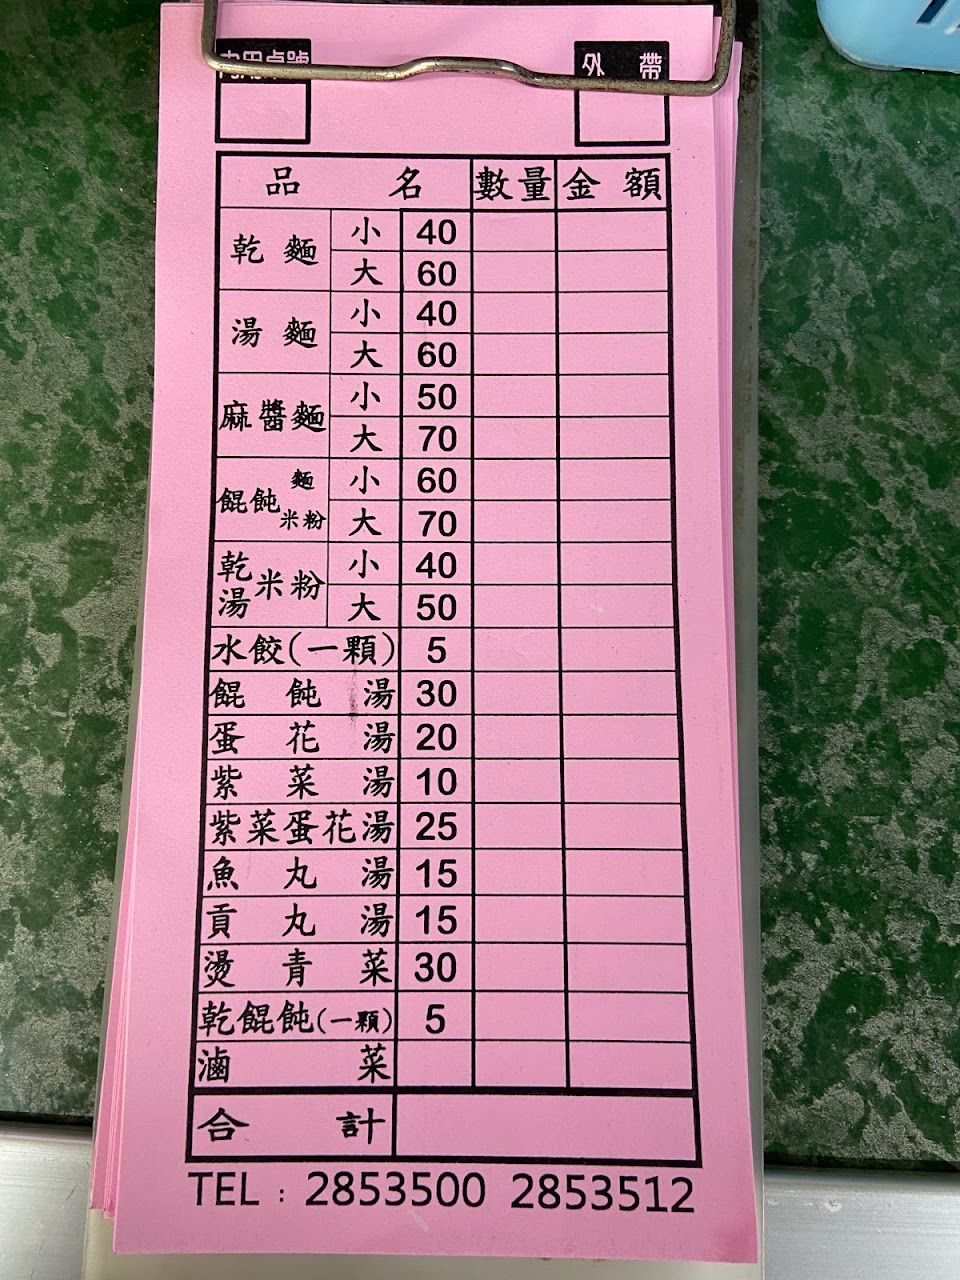 內用桌號 外帶
品名 數量 金額
乾麵 小 40
大 60
湯麵 小 40
大 60
麻醬麵 小 50
大 70
餛飩 麵 米粉 小 60
大 70
乾 湯 米粉 小 40
大 50
水餃(一顆) 5
餛飩湯 30
蛋花湯 20
紫菜湯 10
紫菜蛋花湯 25
魚丸湯 15
貢丸湯 15
燙青菜 30
乾餛飩(一顆) 5
滷菜
合計
TEL：2853500 2853512